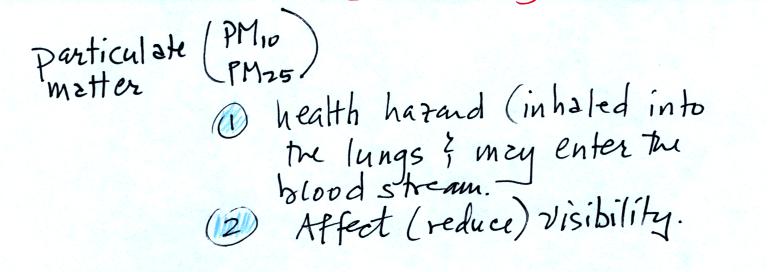 particulate matter (PM10
PM25)
① health hazard (inhaled into
the lungs & may enter the
blood stream.
② Affect (reduce) visibility.